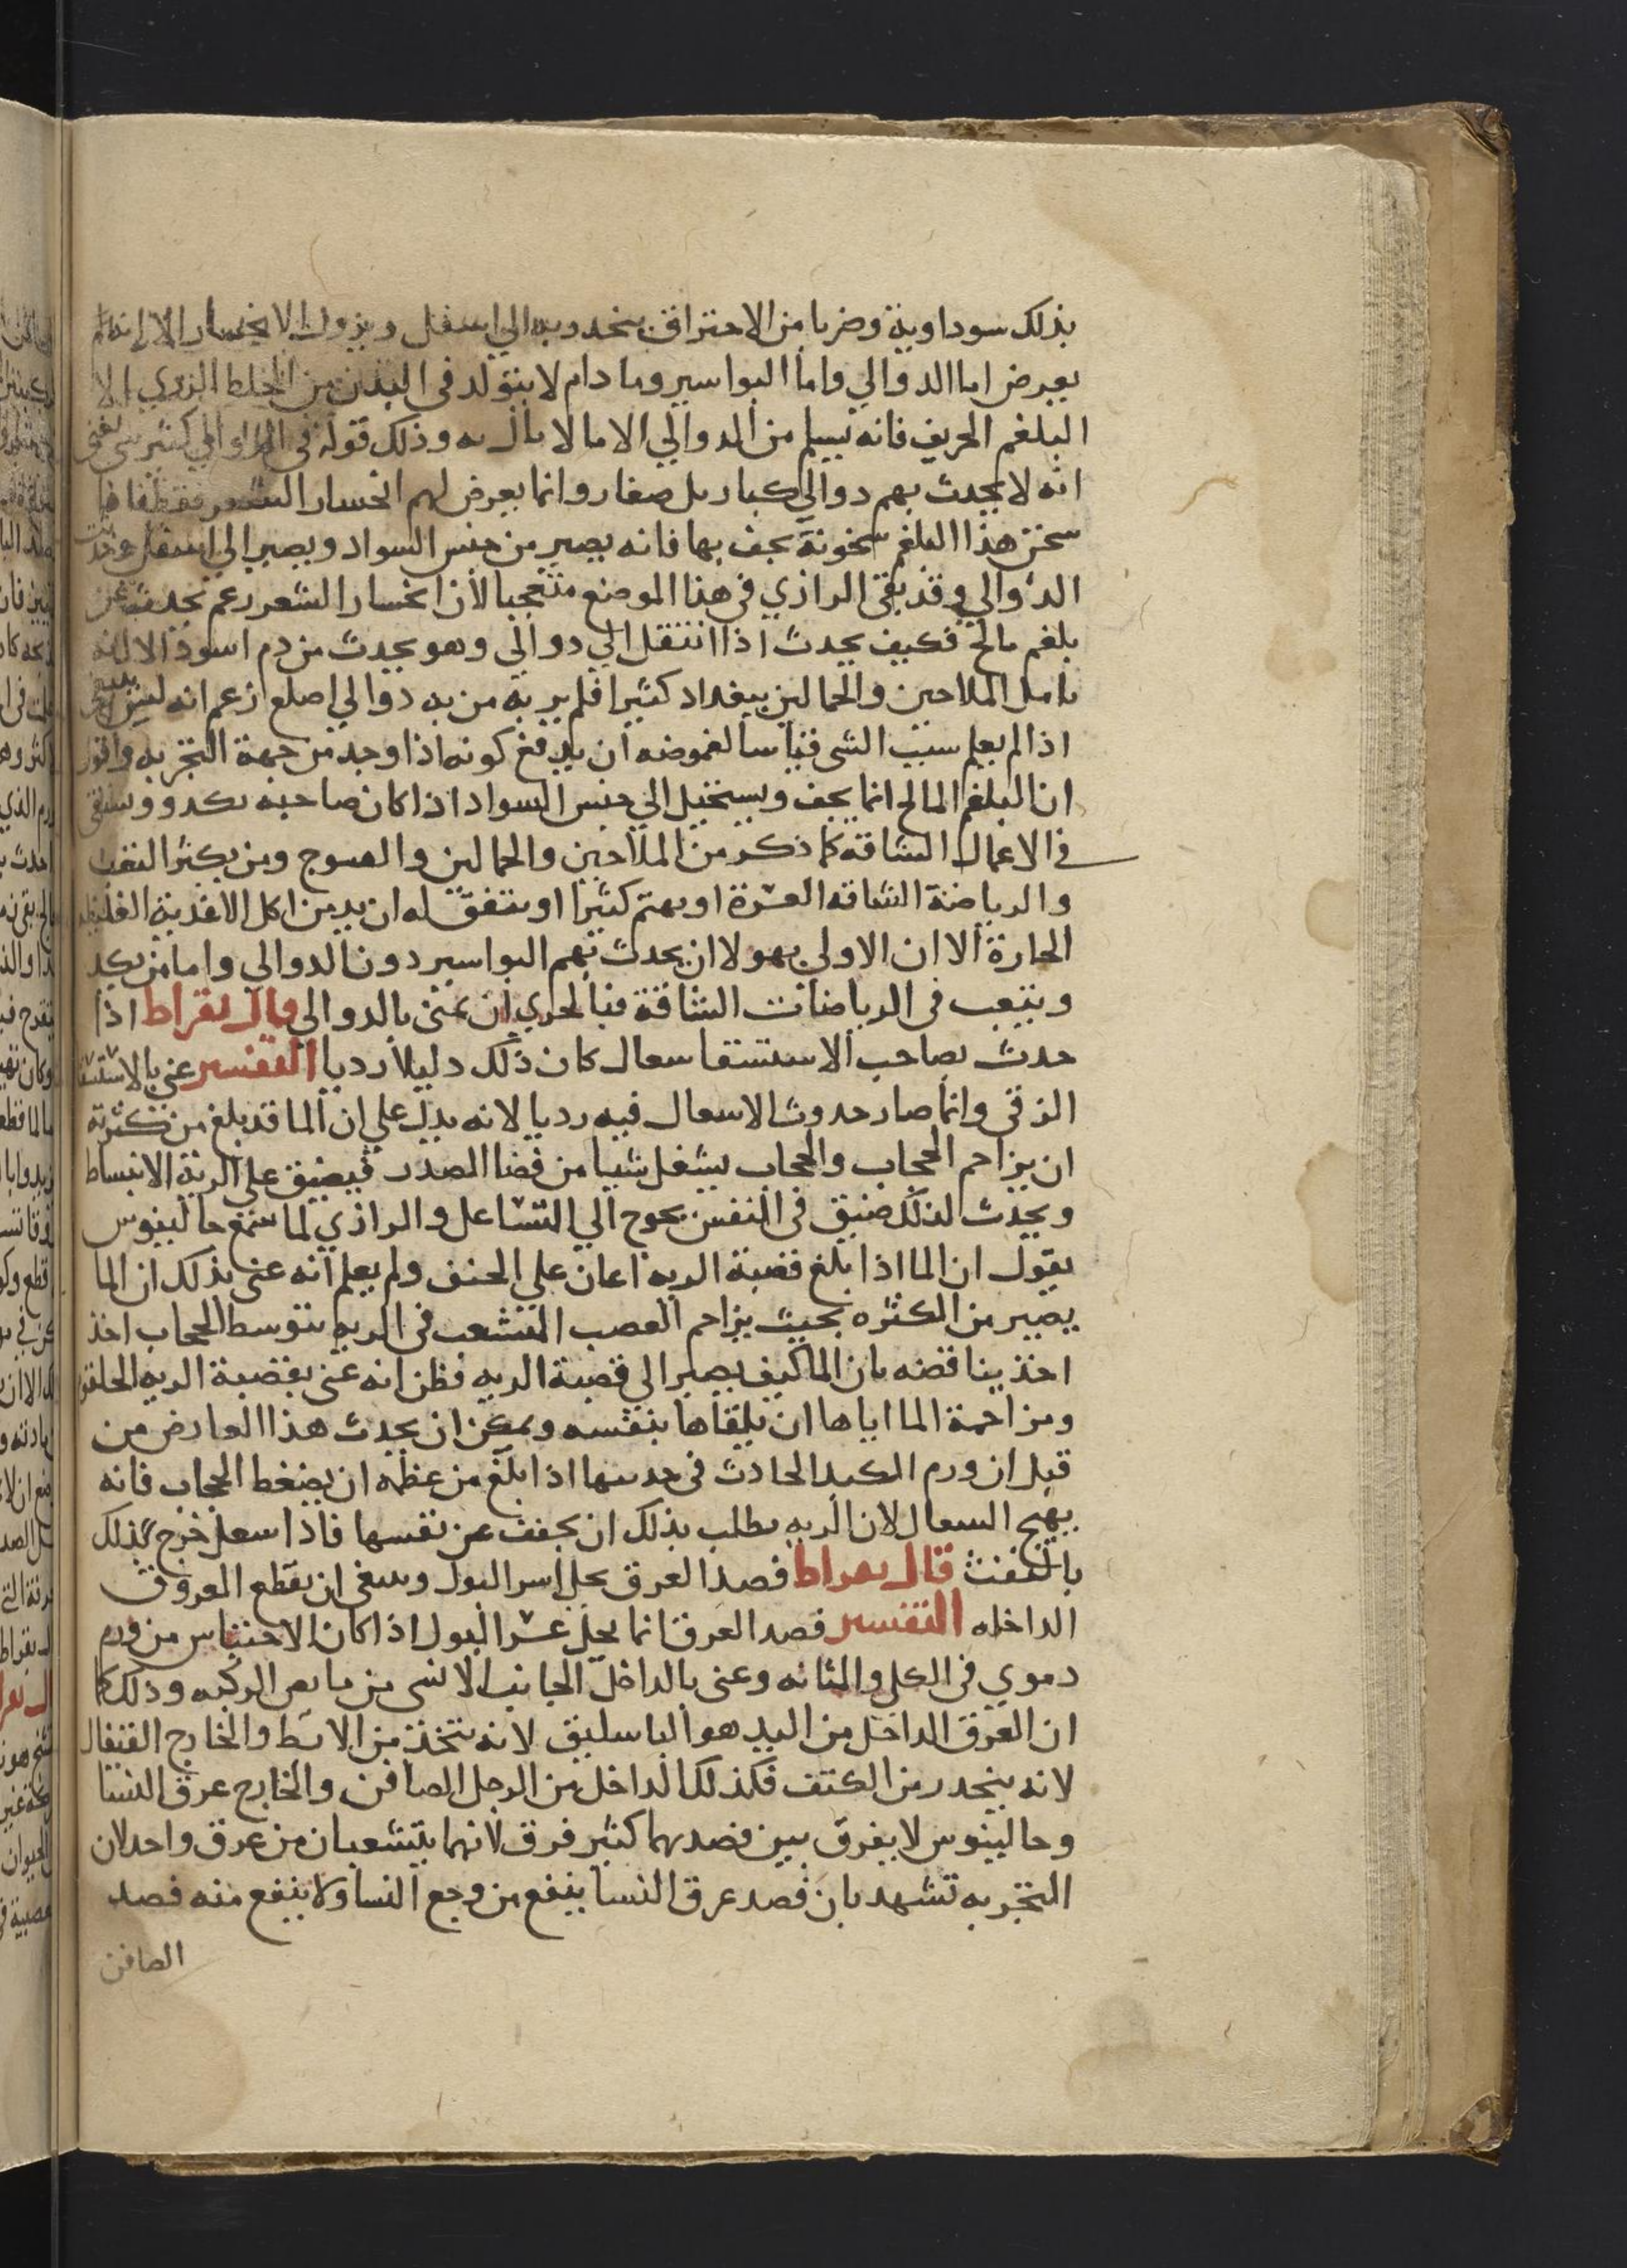 بذلك سوداوية وضربا من الاحتراق ينحدر به الي اسفل ويزول الانحسار الا انه
يعرض اما الدوالي واما البواسير وما دام لا يتولد في البدن من الخلط الردي الا
البلغم الحريف فانه يسلم من الدوالي الا ما لا بال به وذلك قوله في الدوالي كثير شي يعني
انه لا يحدث بهم دوالي كبار بل صغار وانما يعرض لهم انحسار الشعر فقط فاذا
سخن هذا البلغم سخونة يجف بها فانه يصير من جنس السواد ويصير الي اسفل وحدثت
الدوالي وقد بقي الرازي في هذا الموضع متعجبا لان انحسار الشعر زعم يحدث عن
بلغم مالح فكيف يحدث اذا انتقل الي دوالي وهو يحدث من دم اسود الا انه
تامل الملاحين والحمالين ببغداد كثيرا فلم ير به من به دوالي اصلع زعم انه ليس
اذا لم يعلم سبب الشي قياسا لغموضه ان يدفع كونه اذا وجد من جهة التجربه واقول
ان البلغم المالح انما يجف ويستحيل الي جنس السواد اذا كان صاحبه يكد ويشقي
في الاعمال الشاقة كما ذكر من الملاحين والحمالين والفيوج ومن يكثر التعب
والرياضة الشاقه العسرة او يهتم كثيرا او يتفق له ان يدمن اكل الاغذية الغليظه
الحارة الا ان الاولي بهولا ان يحدث بهم البواسير دون الدوالي واما من يكد
ويتعب في الرياضات الشاقة فبالحري ان يمنى بالدوالي قال بقراط اذا
حدث بصاحب الاستسقا سعال كان ذلك دليلا رديا التفسير عني بالاستسقا
الزقي وانما صار حدوث الاسعال فيه رديا لانه يدل علي ان الما قد بلغ من كثرته
ان يزاحم الحجاب والحجاب يشغل شيا من فضا الصدر فيضيق علي الرية الانبساط
ويحدث لذلك ضيق في النفس يحوج الي التساعل والرازي لما سمع جالينوس
يقول ان الما اذا بلغ قصبة الريه اعان علي الخنق ولم يعلم انه عني بذلك ان الما
يصير من الكثره بحيث يزاحم العصب المتشعب في الريه بتوسط الحجاب اخذ
اخذ يناقضه بان الما كيف يصير الي قصبة الريه فظن انه عني بقصبة الريه الحلقوم
ومزاحمة الما اياها ان يلقاها بنفسه ويمكن ان يحدث هذا العارض من
قبل ان ورم الكبد الحادث في حدبتها اذا بلغ من عظمه ان يضغط الحجاب فانه
يهيج السعال لان الريه يطلب بذلك ان يخفف عن نفسها فاذا سعل خرج لذلك
بالنفث قال بقراط فصد العرق يحل اسر البول وينبغي ان يقطع العروق
الداخله التفسير فصد العرق انما يحل عسر البول اذا كان الاحتباس من ورم
دموي في الكلي والمثانه وعني بالداخل الجانب الانسي من مابض الركبه وذلك كما
ان العرق الداخل من اليد هو الباسليق لانه يتخذ من الابط والخارج القيفال
لانه ينحدر من الكتف فكذلك الداخل من الرجل الصافن والخارج عرق النسا
وجالينوس لا يفرق بين فصدهما كثير فرق لانهما يتشعبان من عرق واحد لان
التجربه تشهد بان فصد عرق النسا ينفع من وجع النسا ولا ينفع منه فصد
الصافن